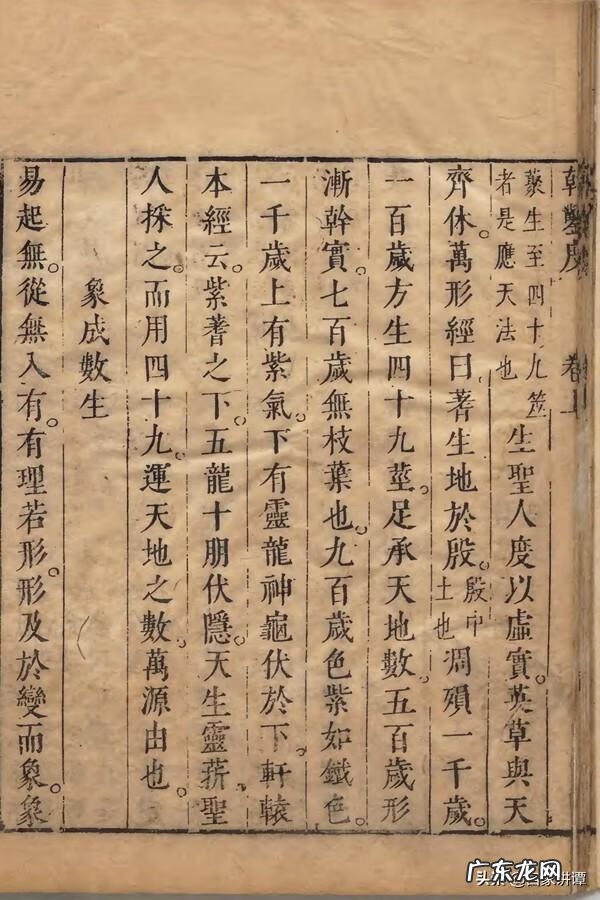 乾鑿度 卷上
蓂生至四十九莖
者是應天法也
生聖人度以虛實。英草與天
齊休。萬形經曰蓍生地於殷。殷中土也凋殞一千歲。
一百歲方生四十九莖。足承天地數。五百歲形
漸幹實。七百歲無枝葉也。九百歲色紫如鐵色。
一千歲上有紫氣。下有靈龍神龜伏於下。軒轅
本經云。紫蓍之下。五龍十朋伏隱。天生靈菥聖
人採之。而用四十九。運天地之數。萬源由也。
象成數生
易起無。從無入有。有理若形。形及於變而象。象
广东龙网